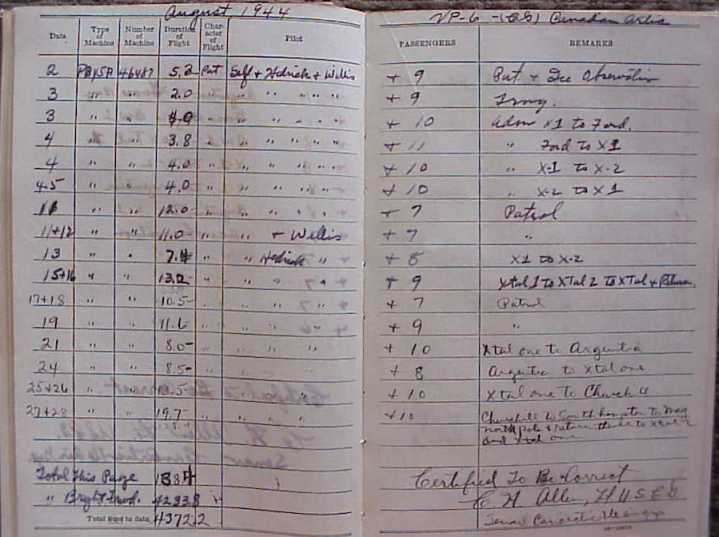 August 1944 VP-6 - (CG) Canadian Artic
Date Type of Machine Number of Machine Duration of Flight Character of Flight Pilot PASSENGERS REMARKS
2 PBY5A 46487 5.2 Pat Self + Hedrick + Willis + 9 Pat + Ice Observation
3 " " 2.0 " " " " + 9
3 " " " " " " + 10 Adm X1 to Ford.
4 " " 3.8 " " " " + 11 " Ford to X1
4 " " 4.0 " " " " + 10 " X-1 to X-2
4-5 " " 4.0 " " " " + 10 " X-2 to X1
11 " " 12.0 " " " " + 7 Patrol
11+12 " " 11.0 " " + Willis + 7 "
13 " " 7.4 " " Hedrick " + 8 X1 to X-2
15+16 " " 13.2 " " " + 9 Xtal 1 to XTal 2 to XTal +
17+18 " " 10.5 " " " + 7 Patrol
19 " " 11.6 " " " + 9 "
21 " " 8.0 " " " + 10 Xtal one to Argentia
24 " " 8.5 " " " + 8 Argentia to Xtal one
25+26 " " " " + 10 Xtal one to Church
27+28 " " 19.7 " " +10 Churchill to South hampton to mag
north pole + return thence to
and Xtal one
Total this Page 138.4 Certified To Be Correct
" Brought Forwd. 4233.8 " C H Allen, USCG
Total to date, 4372.2